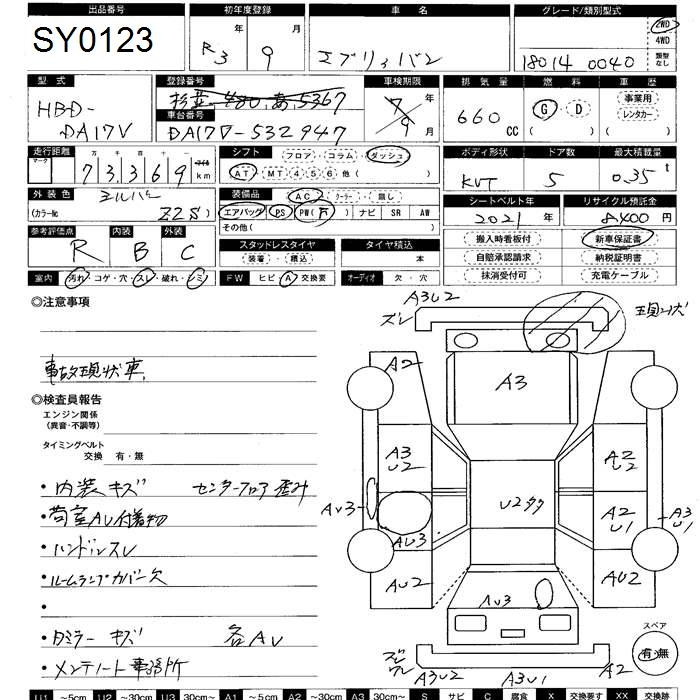 出品番号 初年度登録 車名 グレード/類別型式
SY0123 R3 年 9 月 エブリィバン 18014 0040 2WD 4WD 類型なし
型式 登録番号 車検期限 排気量 燃料 車歴
HBD-DA17V 杉並 480 あ 5367 7年 9月 660 CC G・D ( ) 事業用 レンタカー ( )
車台番号
DA17V-532947
走行距離 シフト フロア・コラム・ダッシュ ボディ形状 ドア数 最大積載量
マーク 万 千 百 十 一 マイル
73,369 km AT・MT 4 5 6 他( ) KVT 5 0.35 t
外装色 シルバー 装備品 AC・クーラー・無し シートベルト年 リサイクル預託金
(カラーNo Z2S) エアバッグ PS PW ナビ SR AW 2021 年 8400 円
その他( )
参考評価点 内装 外装 スタッドレスタイヤ タイヤ積込 搬入時看板付 新車保証書
R B C 装着・積込 本 自賠承認請求 納税証明書
室内 汚れ・コゲ・穴・スレ・破れ・シミ FW ヒビ・A・交換要 オーディオ 欠・穴 抹消受付可 充電ケーブル
◎注意事項
事故現状車
◎検査員報告
エンジン関係
(異音・不調等)
タイミングベルト
交換 有・無
・内装キズ センターフロア歪み
・荷室AU付着物
・ハンドルスレ
・ルームランプカバー欠
・
・Dミラーキズ 各AU
・メンテノート事務所
A3U2
ズレ
現状
A2
A3
A3
U2
A2
U2
AU3
U2多タ
A2
U1
A3
U1
AU3
AU2
AU2
AU3
スペア
有・無
A3U2 A3U1 A2
U1 ~5cm U2 ~30cm U3 30cm~ A1 ~5cm A2 ~30cm A3 30cm~ S サビ C 腐食 X 交換要す XX 交換跡